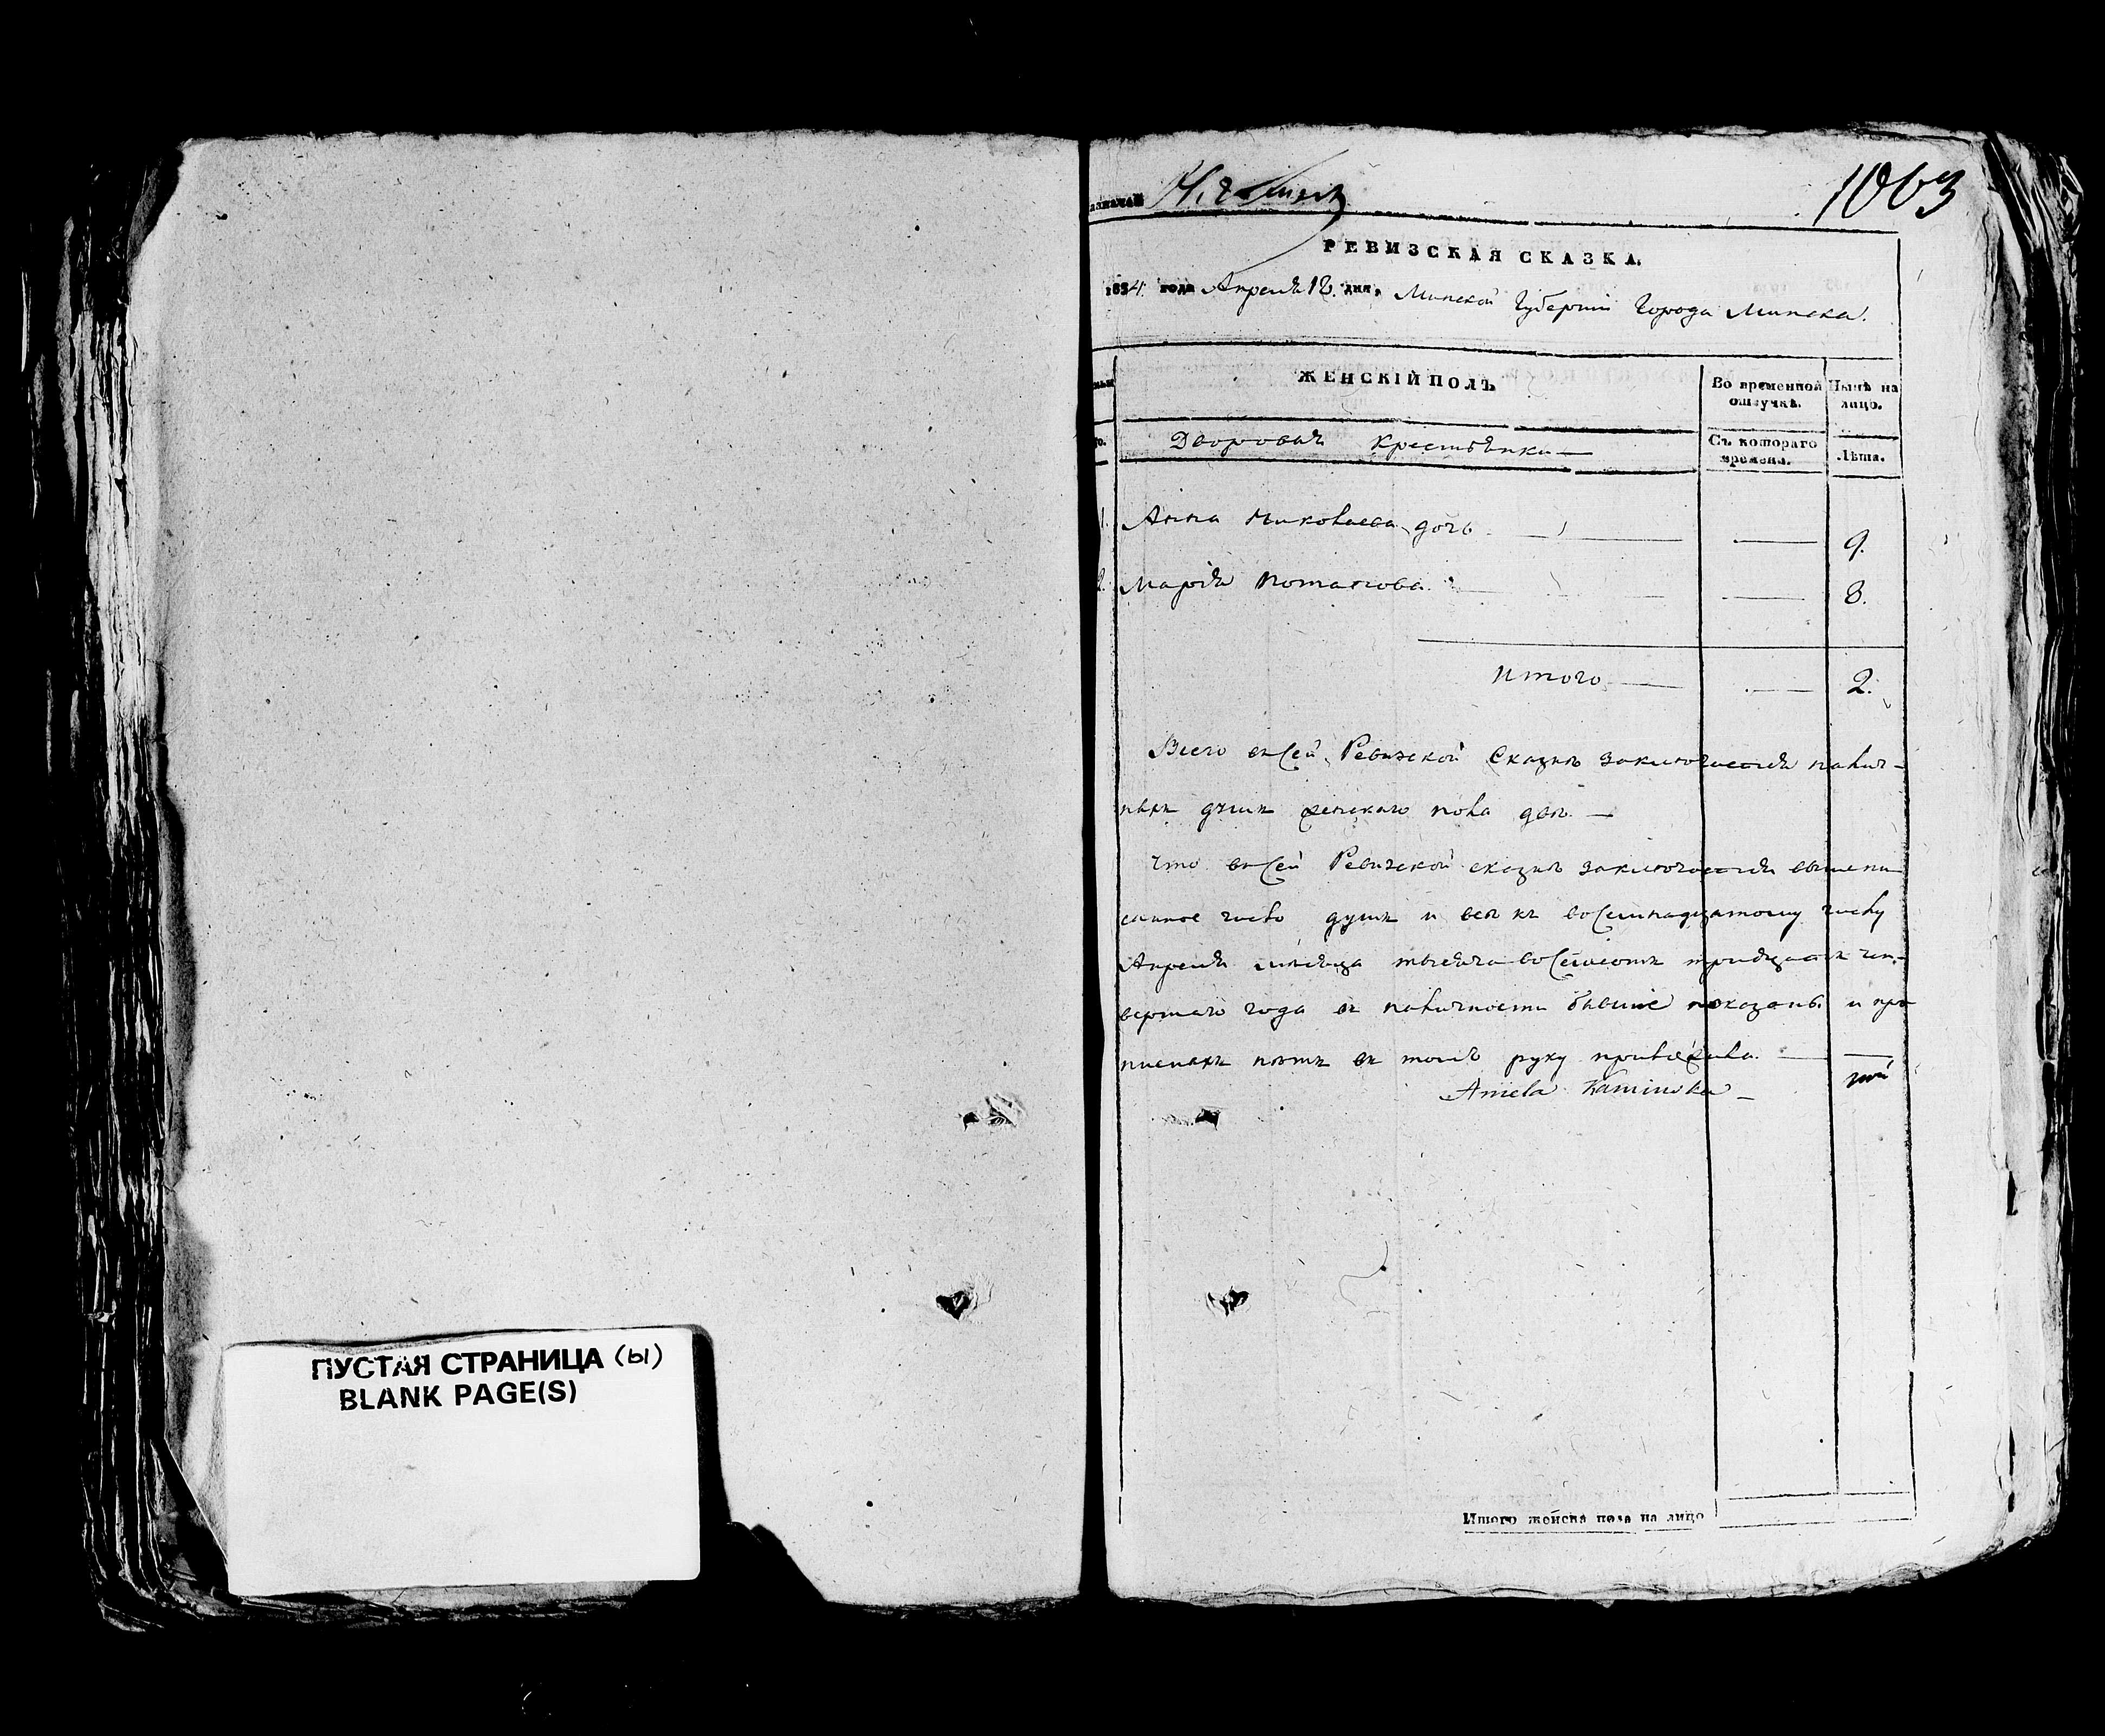 ПУСТАЯ СТРАНИЦА (ы)
BLANK PAGE(S)
1063
РЕВИЗСКАЯ СКАЗКА.
1834 года Апреля 18. дня, Минской Губернiи Города Минска.
ЖЕНСКIЙ ПОЛЪ
Во временной отлучкѣ.
Нынѣ на лицо.
Дворовыя Крестьянки
Съ котораго времени.
Лѣта.
1. Анна Николаева дочь 9.
2. Марiя Потапова 8.
Итого 2.
Всего въ сей Ревизской Сказкѣ заключается налич-
ныхъ душъ женскаго пола двѣ.
Что въ сей Ревизской сказкѣ заключается вышепи
санное число душъ и всѣ къ восемнадцатому числу
Апреля мѣсяца тысяча восемсотъ тридцать чет-
вертаго года въ наличности бывшiе показаны и про
писныхъ нѣтъ въ томъ руку приложила.
Aniela Kaminska
Итого женска пола на лицо